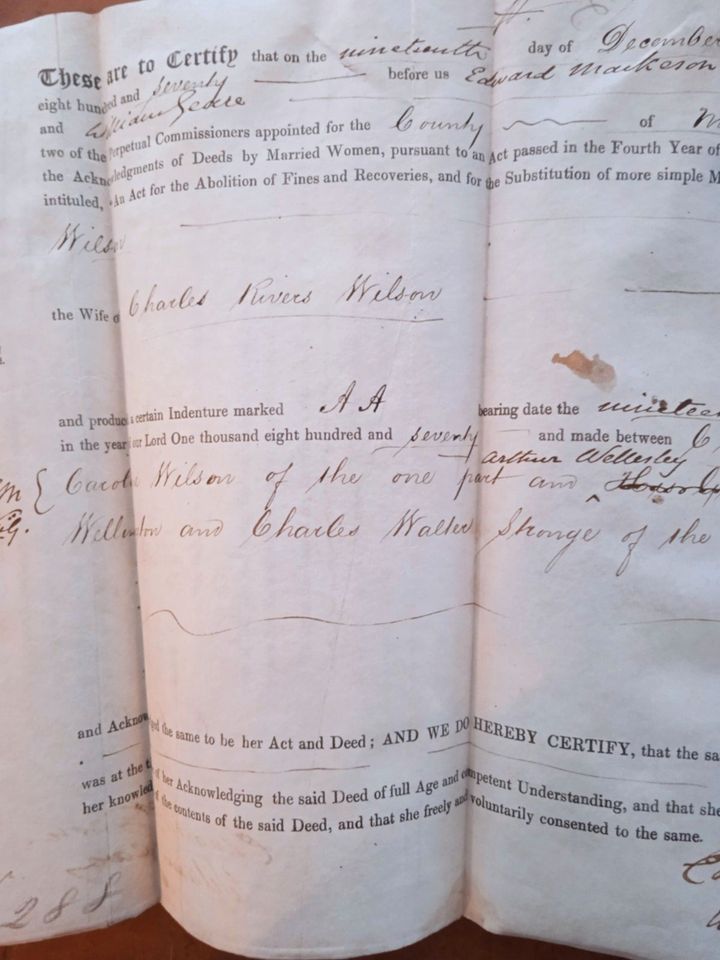 These are to Certify that on the nineteenth day of December
eight hundred and seventy before us Edward Mackeson
and William Geare
two of the Perpetual Commissioners appointed for the County of M
the Acknowledgments of Deeds by Married Women, pursuant to an Act passed in the Fourth Year of
intituled, "An Act for the Abolition of Fines and Recoveries, and for the Substitution of more simple M
Wilson
the Wife of Charles Rivers Wilson
and produc a certain Indenture marked A A bearing date the nineteen
in the year our Lord One thousand eight hundred and seventy and made between C
Arthur Wellesley
Carol Wilson of the one part and
Wellington and Charles Walter Stronge of the
and Acknow ged the same to be her Act and Deed; AND WE DO HEREBY CERTIFY, that the sa
was at the t of her Acknowledging the said Deed of full Age and competent Understanding, and that she
her knowled of the contents of the said Deed, and that she freely and voluntarily consented to the same.
288